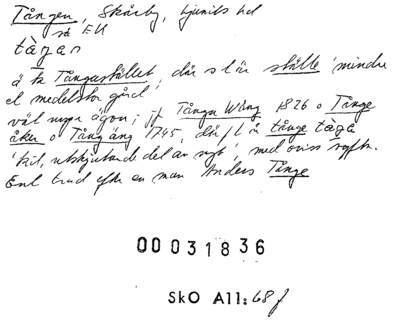 Tången, Skårby, Ljunits hd
så EU
tàgan
å te Tångastället, där s l är ställe 'mindre
el medelstor gård'
väl nyare ägon; jf Tånga Wång 1826 o Tånge
åker o Tång äng 1745, där f l är tånge tàga
'kil, utskjutande del av ngt', med oviss syftn.
Enl trad efter en man Anders Tånge
00031836
SkO All: 68 f